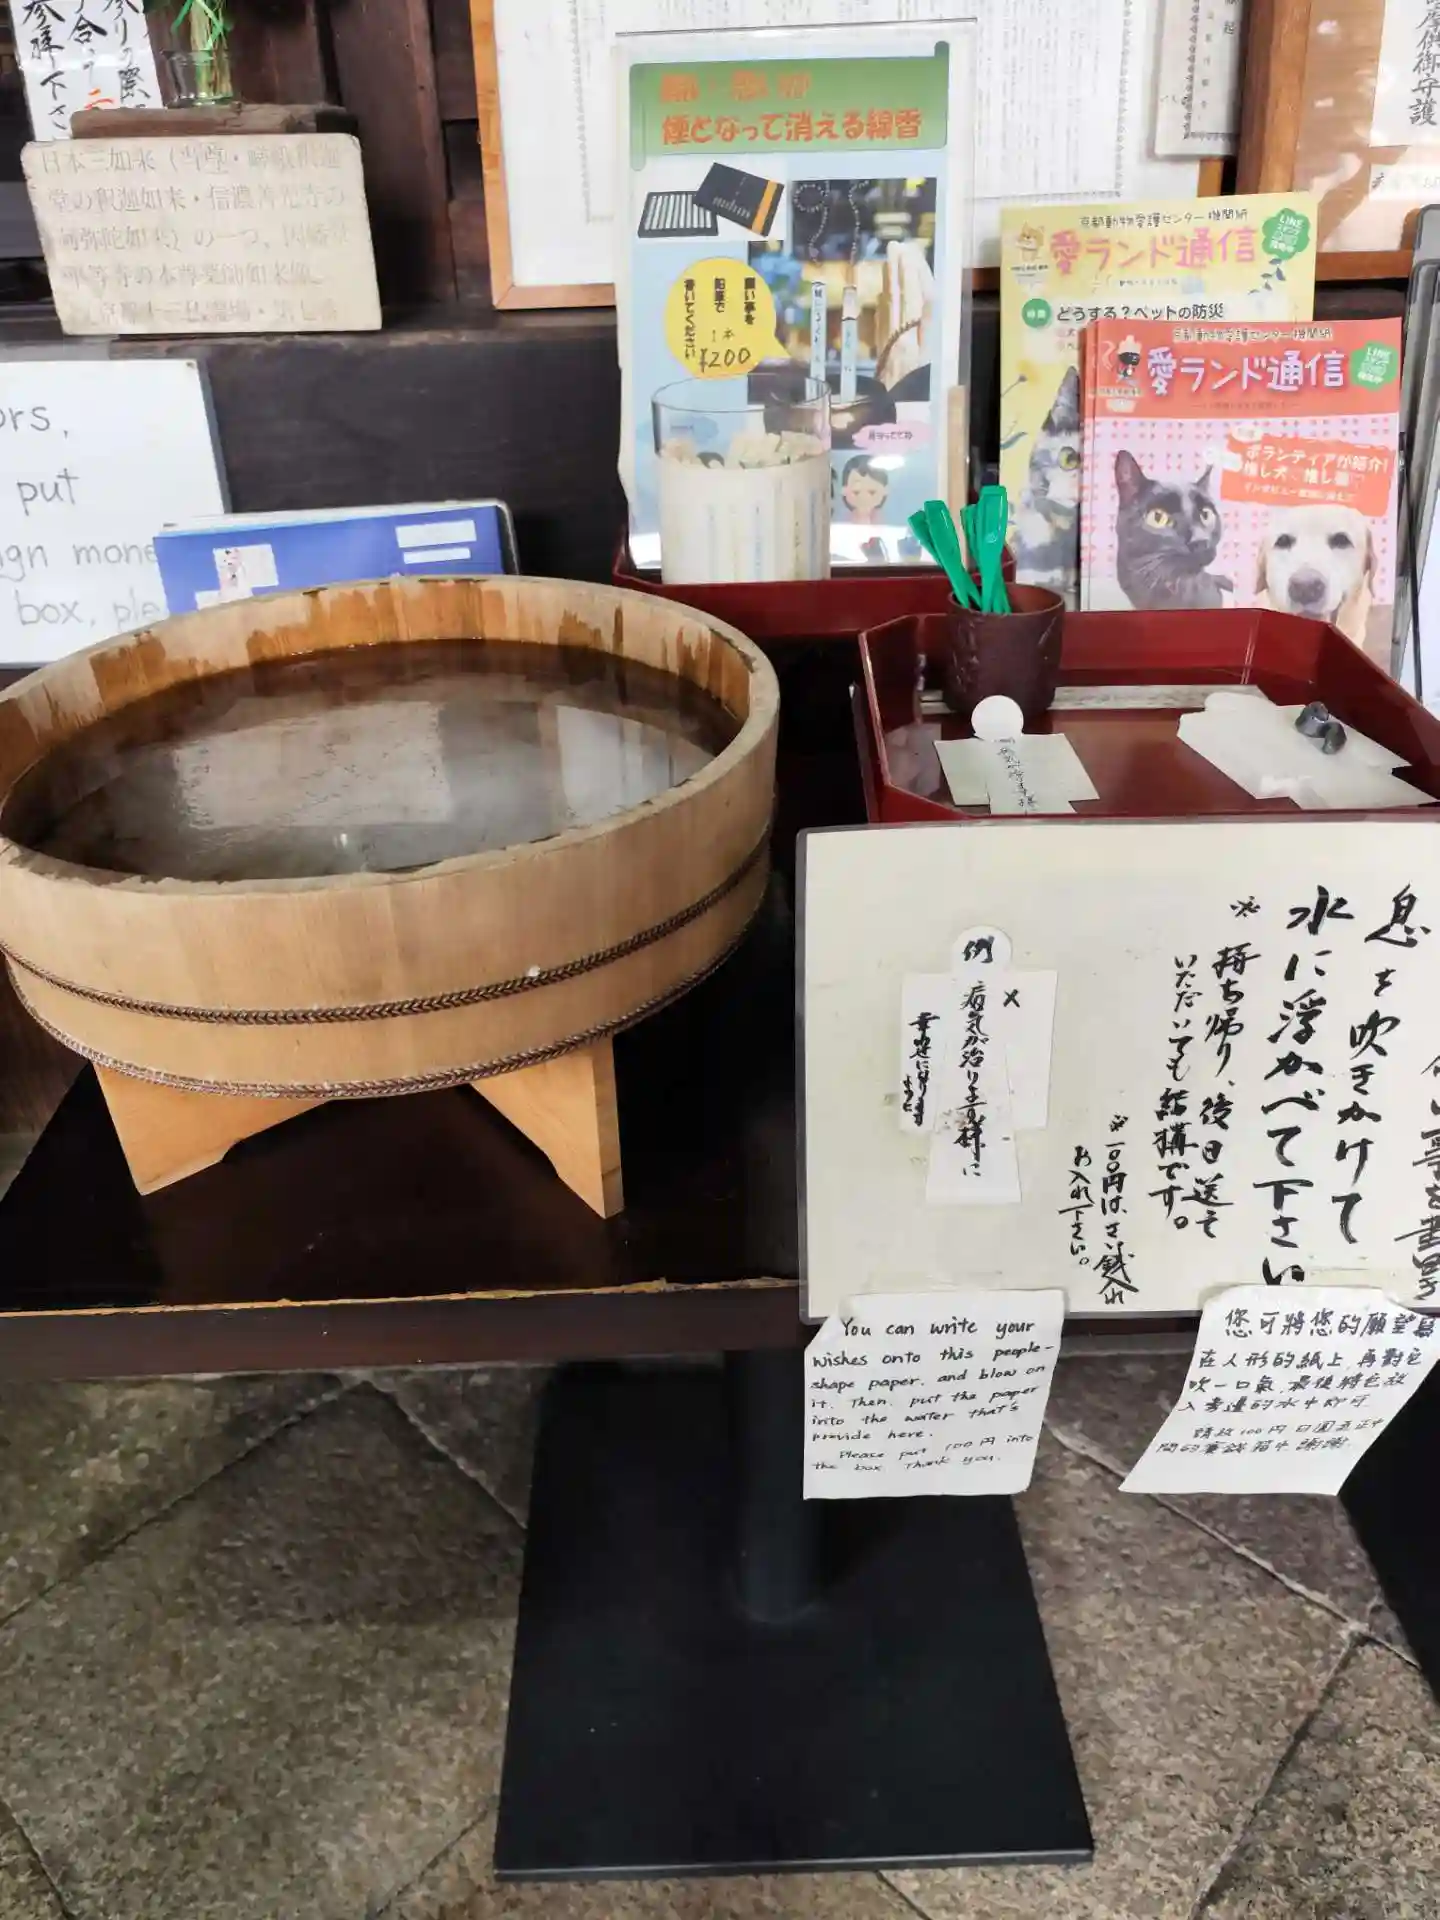 参りの際
手合って二
参拝下さ
日本三如来（当堂・嵯峨釈迦
堂の釈迦如来・信濃善光寺の
阿弥陀如来）の一つ、因幡堂
平等寺の本尊薬師如来像。
ors,
put
ign mone
box, ple
煙となって消える線香
願い事を
鉛筆で
書いてください
1本
¥200
見守っててね
京都動物愛護センター機関紙
愛ランド通信
LINE
スタンプ
特集
どうする?ペットの防災
京都動物愛護センター機関紙
愛ランド通信
LINE
スタンプ
ボランティアが紹介!
推し犬♡推し猫♡
供御守護
息を吹きかけて
水に浮かべて下さい
※持ち帰り、後日送って
いただいても結構です。
※一〇〇円は、さい銭入れ
お入れ下さい。
例
×
病気が治ります様に
幸せになりますように
You can write your
wishes onto this people-
shape paper, and blow on
it. Then, put the paper
into the water that's
provide here.
Please put 100円 into
the box. Thank you.
您可將您的願望寫
在人形的紙上,再對它
吹一口氣,最後將它放
入旁邊的水中即可.
請放100円日圓至正中
間的賽錢箱中,謝謝.